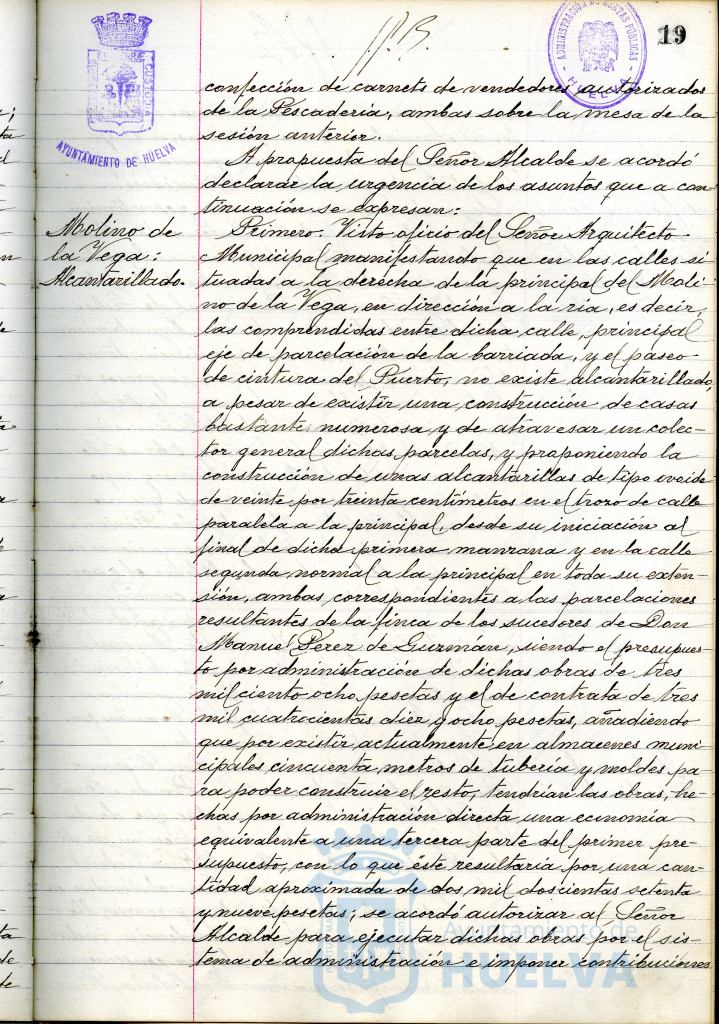 19
EL PORTUS
CUSTODIA
AYUNTAMIENTO DE HUELVA
ADMINISTRACIÓN DE RENTAS PÚBLICAS
HUELVA
confección de carnets de vendedores autorizados
de la Pescadería, ambas sobre la mesa de la
sesión anterior.
A propuesta del Señor Alcalde se acordó
declarar la urgencia de los asuntos que a con-
tinuación se expresan:
Molino de
la Vega:
Alcantarillado.
Primero. Visto oficio del Señor Arquitecto
Municipal manifestando que en las calles si-
tuadas a la derecha de la principal del Moli-
no de la Vega, en dirección a la ria, es decir,
las comprendidas entre dicha calle, principal
eje de parcelación de la barriada, y el paseo
de cintura del Puerto, no existe alcantarillado,
a pesar de existir una construcción de casas
bastante numerosa y de atravesar un colec-
tor general dichas parcelas, y proponiendo la
construcción de unas alcantarillas de tipo ovoide
de veinte por treinta centímetros en el trozo de calle
paralela a la principal, desde su iniciación al
final de dicha primera manzana y en la calle
segunda normal a la principal en toda su exten-
sión, ambas correspondientes a las parcelaciones
resultantes de la finca de los sucesores de Don
Manuel Perez de Guzmán, siendo el presupues-
to por administración de dichas obras de tres
mil ciento ocho pesetas y el de contrata de tres
mil cuatrocientas diez y ocho pesetas, añadiendo
que por existir actualmente en almacenes muni-
cipales cincuenta metros de tubería y moldes pa-
ra poder construir el resto, tendrían las obras, he-
chas por administración directa una economía
equivalente a una tercera parte del primer pre-
supuesto, con lo que éste resultaría por una can-
tidad aproximada de dos mil doscientas setenta
y nueve pesetas; se acordó autorizar al Señor
Alcalde para ejecutar dichas obras por el sis-
tema de administración e imponer contribuciones
Ayuntamiento de
HUELVA